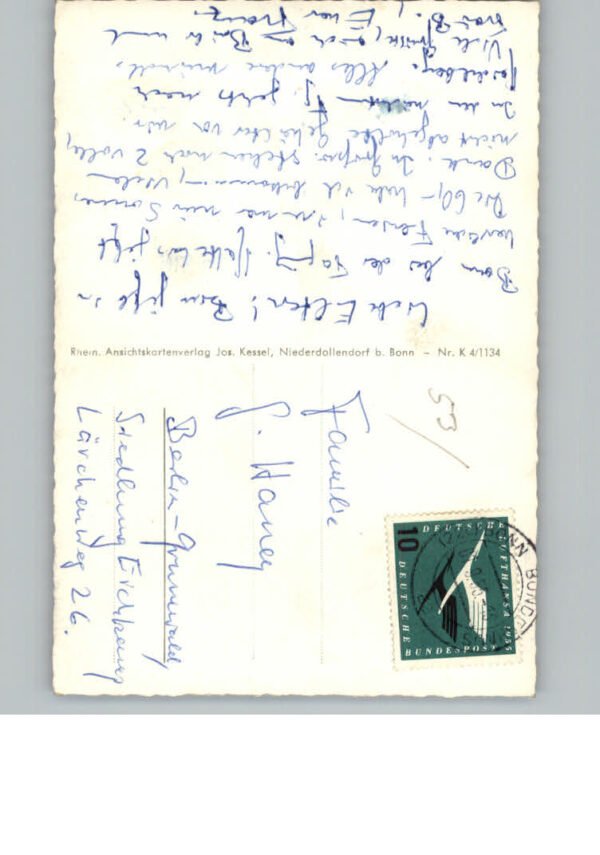 Liebe Eltern! Bin jetzt in
Bonn bei der Tagung. Hatte bis jetzt
herrliche Ferien, immer nur Sonne,
Die 60,- habe ich bekommen, vielen
Dank. In stehen noch 2 volle,
nicht abgeholte vor mir.
In den nächsten jetzt nach
Heidelberg. Alles andere mündl.
Viele Grüße, auch an und
Euer Franz.
Rhein. Ansichtskartenverlag Jos. Kessel, Niederdollendorf b. Bonn – Nr. K 4/1134
53
Familie
G. Haney
Berlin-Grunewald
Siedlung Eichkamp
Lärchenweg 26.
DEUTSCHE LUFTHANSA 1955
10
DEUTSCHE BUNDESPOST
BONN